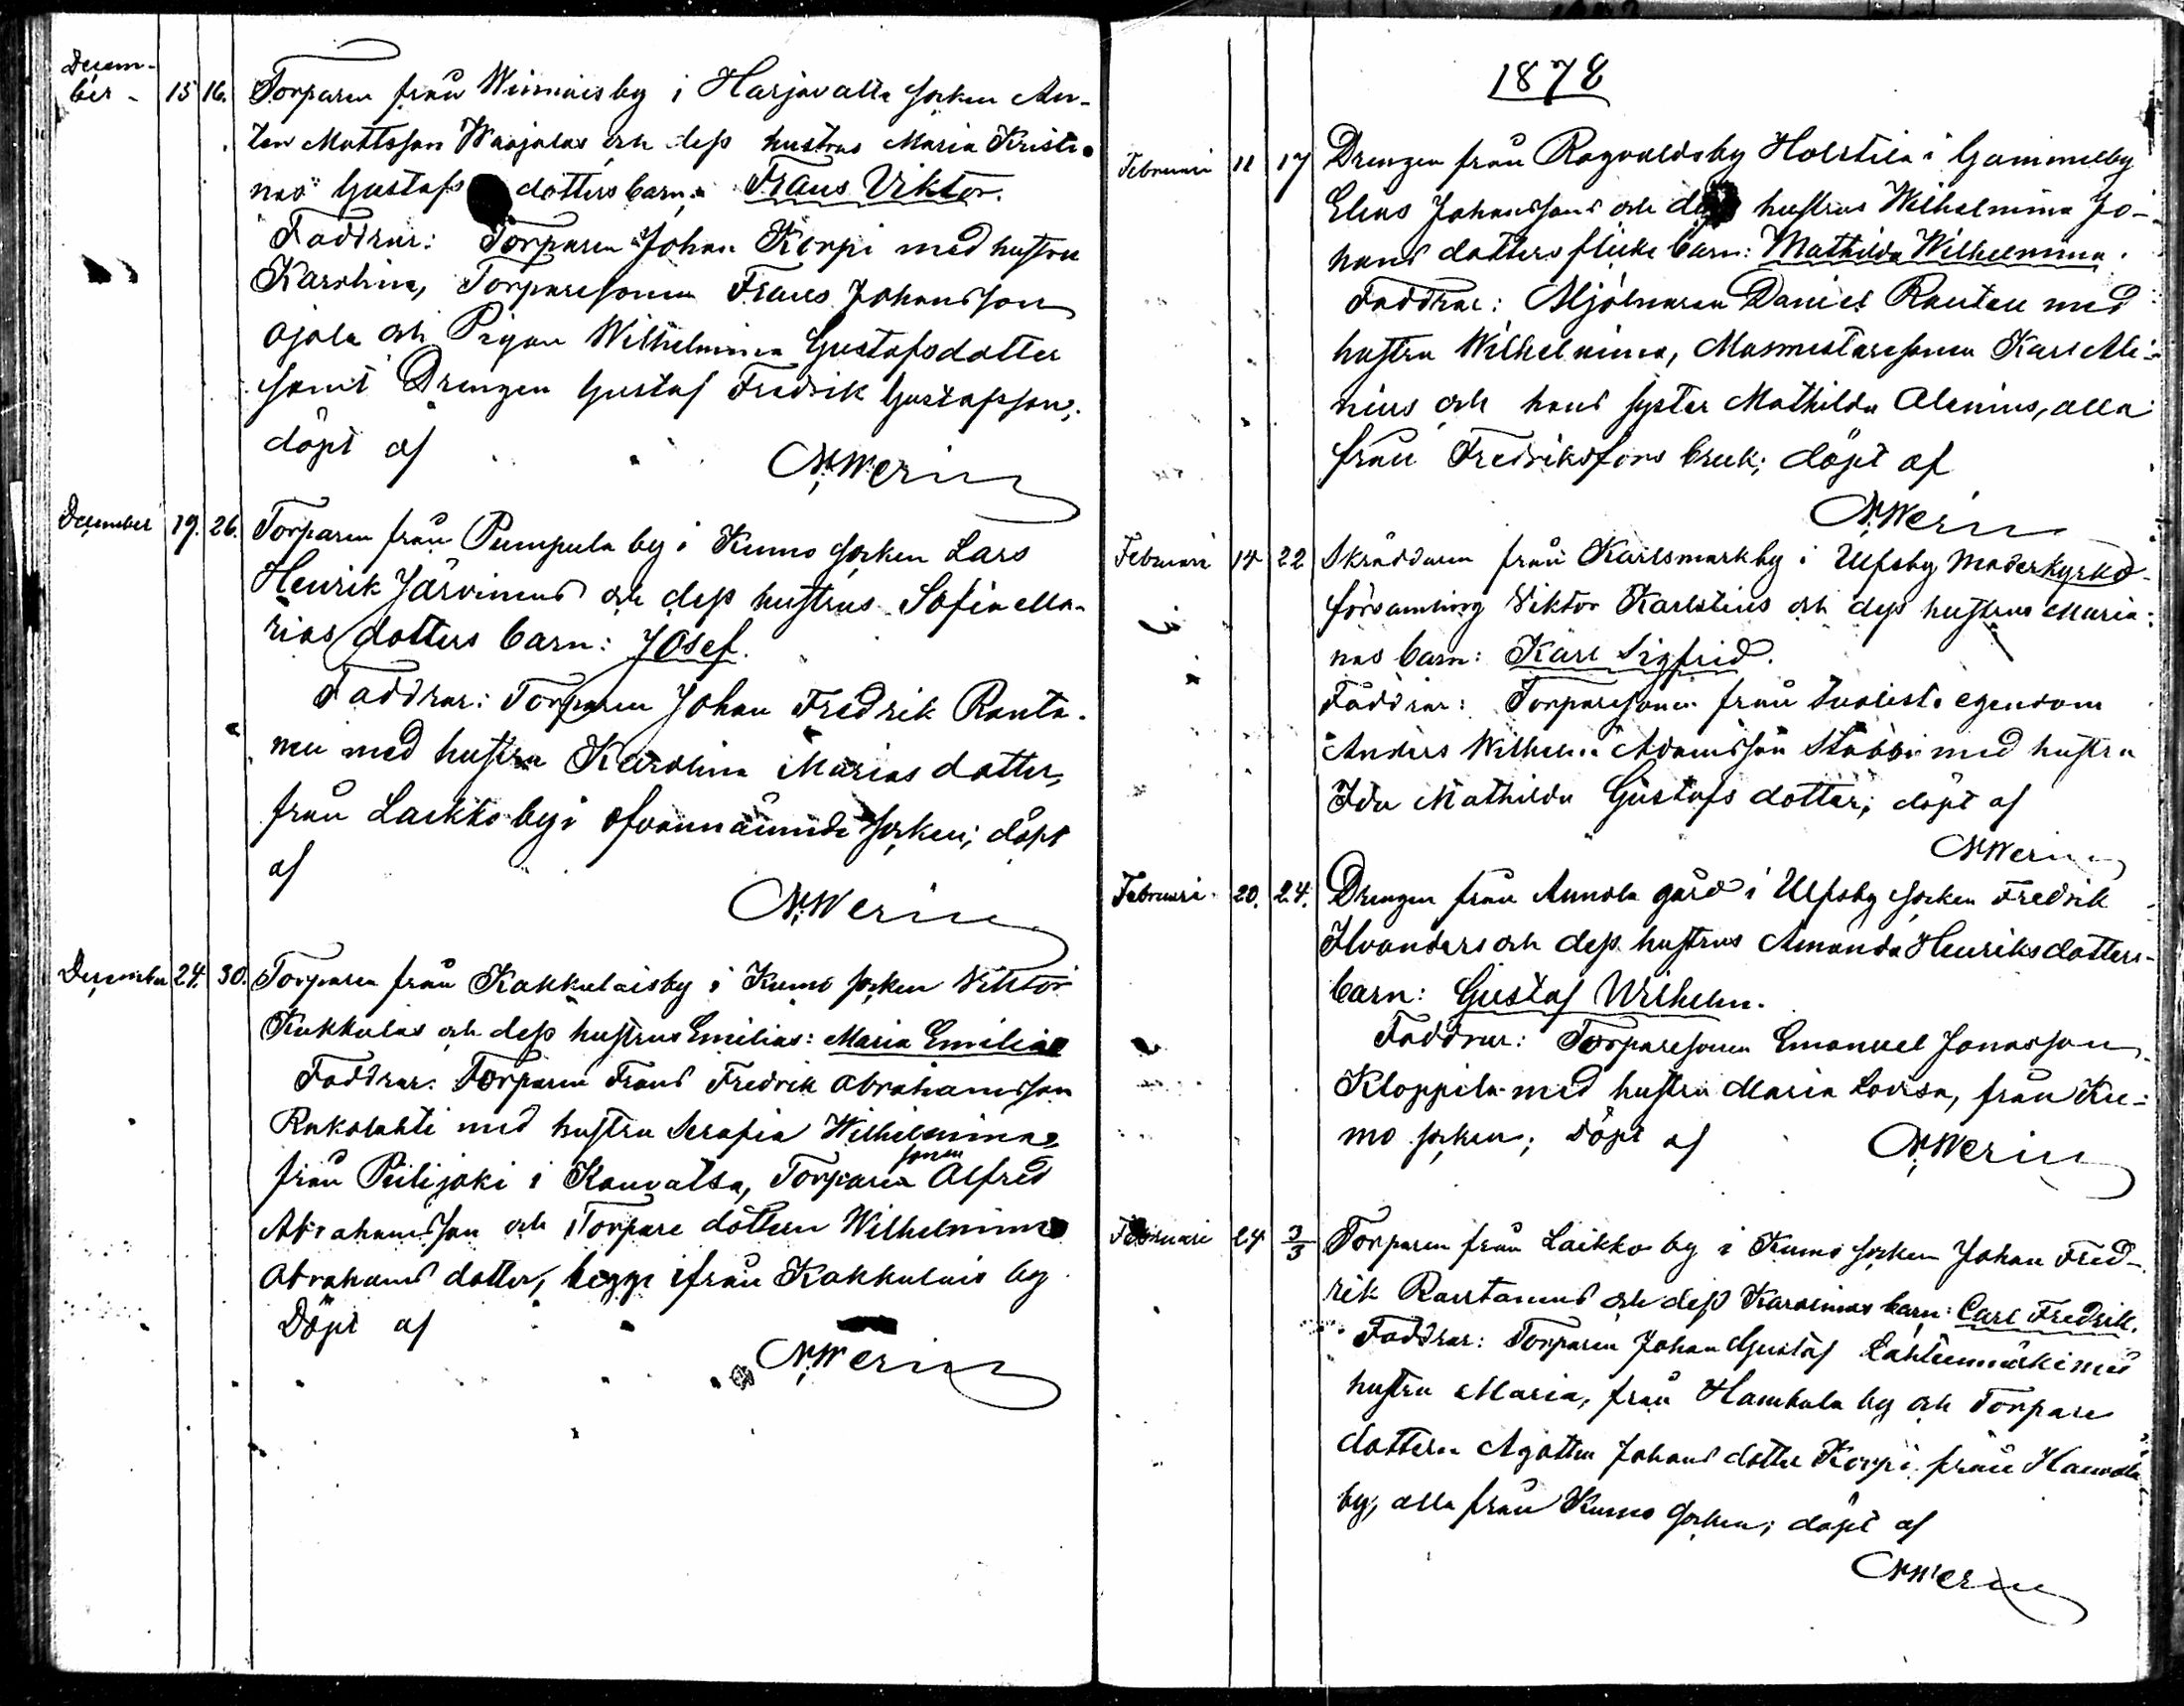 Decem-
ber - 15 16. Torparen från Winnais by i Harjavalta socken An-
ton Mattsson Waajalas och dess hustrus Maria Kristi-
nas Gustafs dotters barn: Frans Viktor.
Faddrar: Torparen Johan Korpi med hustru
Karolina, Torparesonen Frans Johansson
Ojala och Pigan Wilhelmina Gustafsdotter
samt Drengen Gustaf Fredrik Gustafsson;
döpt af
N. Werin
December 19. 26. Torparen från Pumpula by i Kumo socken Lars
Henrik Järvinens och dess hustrus Sofia Ma-
rias dotters barn: Josef.
Faddrar: Torparen Johan Fredrik Ranta-
nen med hustru Karolina Marias dotter,
från Laikko by i ofvannämnde socken; döpt
af
N. Werin
December 24. 30. Torparen från Kakkulais by i Kumo socken Viktor
Kakkulas och dess hustrus Emilias: Maria Emilia
Faddrar: Torparen Frans Fredrik Abrahamsson
Rukolahti med hustru Serafia Wilhelmina,
från Piilijoki i Kauvatsa, Torparesonen Alfred
Abrahamsson och Torpare dottern Wilhelmina
Abrahams dotter, begge ifrån Kakkulais by
Döpt af
N. Werin
1878
Februari 11 17 Drengen från Ragvaldsby Holstila i Gammelby
Elias Johanssons och dess hustrus Wilhelmina Jo-
hans dotters flicke barn: Mathilda Wilhelmina.
Faddrar: Mjölnaren Daniel Rautau med
hustru Wilhelmina, Masmestaresonen Karl Ale-
nius och hans syster Mathilda Alenius, alla
från Fredriksfors bruk; döpt af
N. Werin
Februari 14 22 Skräddaren från Karlsmark by i Ulfsby moderkyrko-
församling Viktor Karlstins och dess hustrus Maria-
nas barn: Karl Sigfrid.
Faddrar: Torparesonen från egendom
Anders Wilhelm Adamsson Stabbi med hustru
Ida Mathilda Gustafs dotter; döpt af
N. Werin
Februari 20. 24. Drengen från Annola gård i Ulfsby socken Fredrik
Ilvanders och dess hustrus Amanda Henriksdotters
barn: Gustaf Wilhelm.
Faddrar: Torparesonen Emanuel Jonasson
Kloppila med hustru Maria Lovisa, från Ku-
mo socken; döpt af N. Werin
Februari 24 3/3 Torparen från Laikko by i Kumo socken Johan Fred-
rik Rantanens och dess Karolinas barn: Carl Fredrik.
Faddrar: Torparen Johan Gustaf Lähteenmäki med
hustru Maria, från Hambula by och Torpare
dottern Agatha Johans dotter Korpi från
by, alla från Kumo socken; döpt af
N. Werin